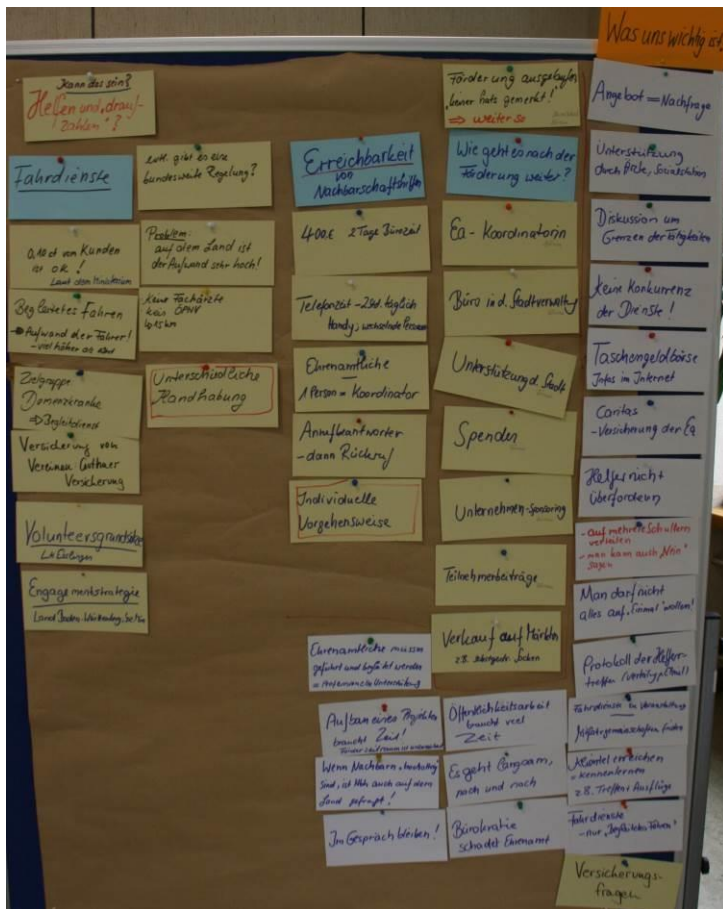 Kann das sein?
Helfen und "drauf-
zahlen"?
Fahrdienste
0,10 ct von Kunden
ist OK!
Laut dem Ministerium
Begleitetes Fahren
Aufwand der Fahrer!
viel höher
Zielgruppe
Demenzkranke
⇒ Begleitdienst
Versicherung von
Vereinen
Versicherung
Volunteersgrundsätze
Engagementstrategie
Land Baden-Württemberg
evtl. gibt es eine
bundesweite Regelung?
Problem:
auf dem Land ist
der Aufwand sehr hoch!
Keine Fachärzte
kein ÖPNV
Unterschiedliche
Handhabung
Erreichbarkeit
von
Nachbarschaftshilfen
400,€ 2 Tage Bürozeit
Telefonzeit - 2Std. täglich
Handy, wechselnde Personen
Ehrenamtliche
1 Person = Koordinator
Anrufbeantworter
- dann Rückruf
Individuelle
Vorgehensweise
Ehrenamtliche müssen
geführt und begleitet werden
= Unterstützung
Aufbau eines Projektes
braucht Zeit!
Wenn Nachbarn
sind, ist Hilfe auch auf dem
Land gefragt!
Im Gespräch bleiben!
Förderung ausgelaufen
"keiner hats gemerkt!"
⇒ weiter so
Wie geht es nach der
Förderung weiter?
Ea - Koordinatorin
Büro in d. Stadtverwaltung
Unterstützung d. Stadt
Spenden
Unternehmen-Sponsoring
Teilnehmerbeiträge
Verkauf auf Märkten
z.B. Socken
Öffentlichkeitsarbeit
braucht viel
Zeit
Es geht langsam,
nach und nach
Bürokratie
schadet Ehrenamt
Was uns wichtig ist
Angebot = Nachfrage
Unterstützung
durch Ärzte, Sozialstation
Diskussion um
Grenzen der Tätigkeiten
Keine Konkurrenz
der Dienste!
Taschengeldbörse
Infos im Internet
Caritas
- Versicherung der Ea
Helfer nicht
überfordern
- auf mehrere Schultern
verteilen
- man kann auch "Nein"
sagen
Man darf nicht
alles auf "Einmal" wollen!
Protokoll der Helfer-
treffen
Fahrdienste
Mitfahrgemeinschaften finden
erreichen
- Kennenlernen
z.B. Treffen, Ausflüge
Fahrdienste
- nur "Begleitetes Fahren"
Versicherungs-
fragen